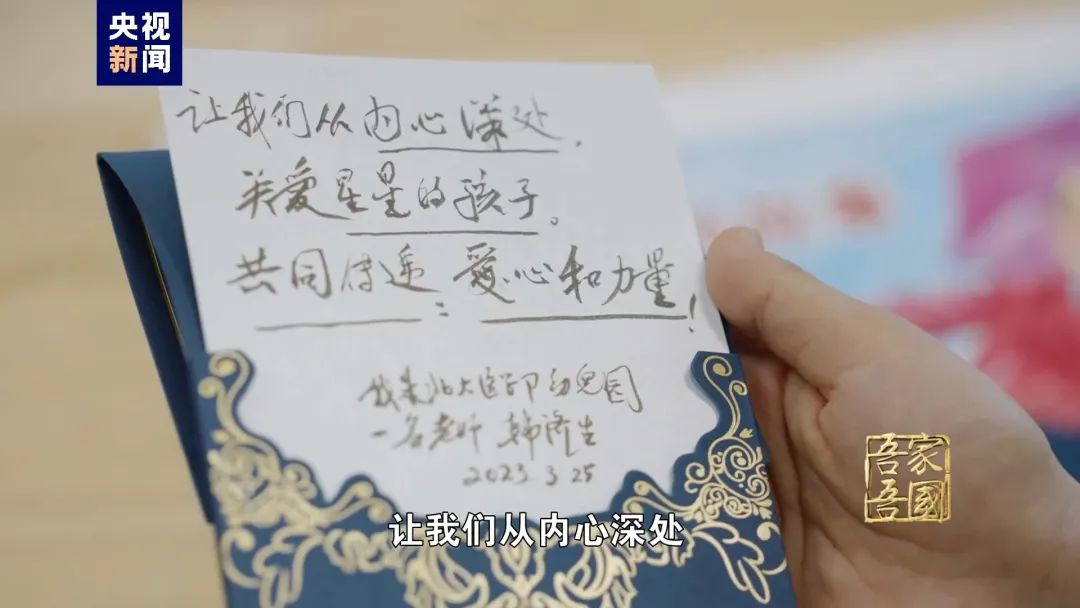 央视
新闻
让我们从内心深处,
关爱星星的孩子。
共同传递:爱心和力量!
我是北大医学部幼儿园
一名老师 韩济生
2023.3.25
吾家
吾國
让我们从内心深处